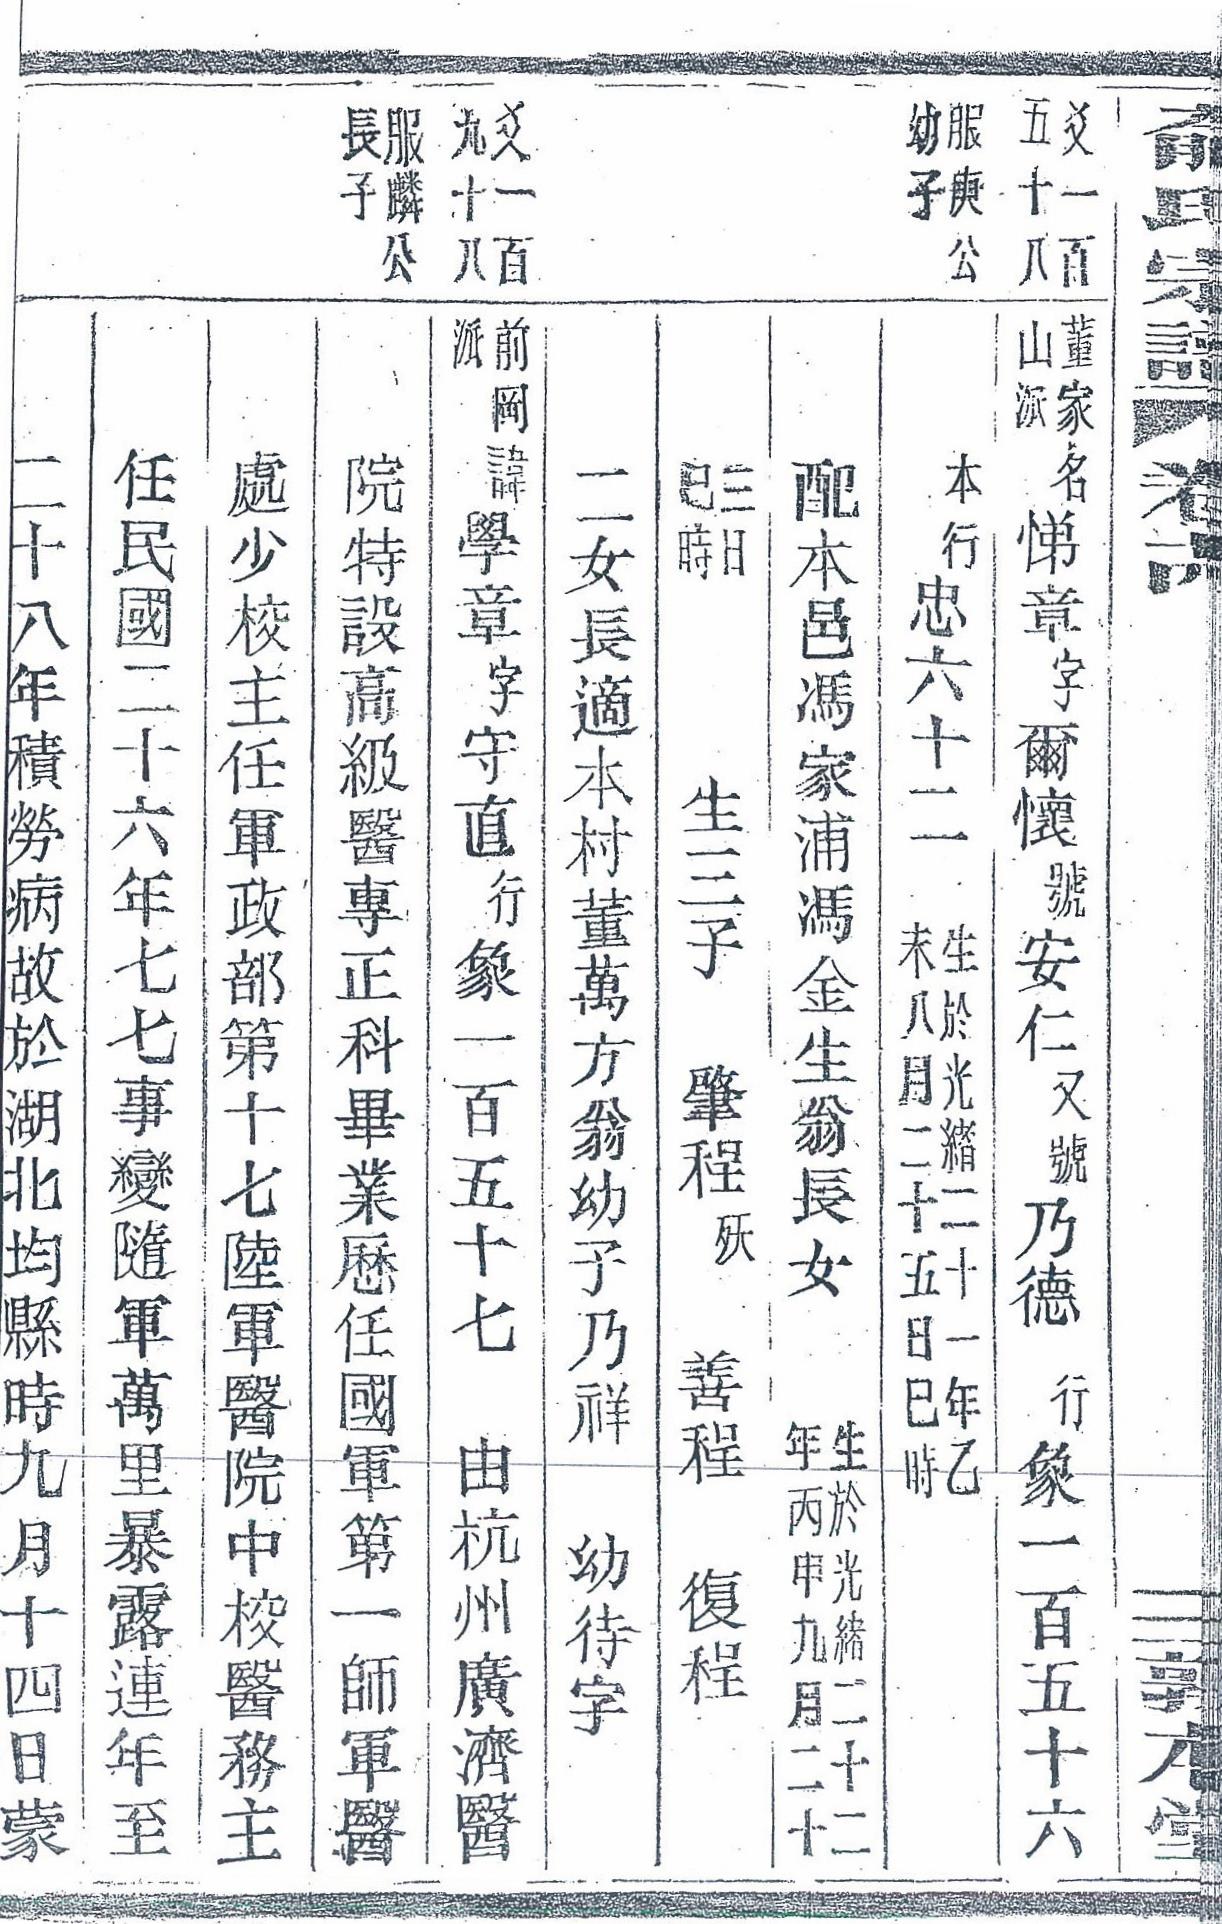 俞氏宗譜 卷六 三享九堂
爻一百五十八
董家山派 名悌章字爾懷號安仁又號乃德 行象一百五十六
服庚公幼子
本行忠六十二 生於光緒二十一年乙未八月二十五日巳時
配本邑馮家浦馮金生翁長女 生於光緒二十二年丙申九月二十
三日巳時 生三子 肇程 殀 善程 復程
二女長適本村董萬方翁幼子乃祥 幼待字
爻一百九十八
前岡派 諱學章字守直行象一百五十七 由杭州廣濟醫
服麟公長子
院特設高級醫專正科畢業歷任國軍第一師軍醫
處少校主任軍政部第十七陸軍醫院中校醫務主
任民國二十六年七七事變隨軍萬里暴露連年至
二十八年積勞病故於湖北均縣時九月十四日蒙